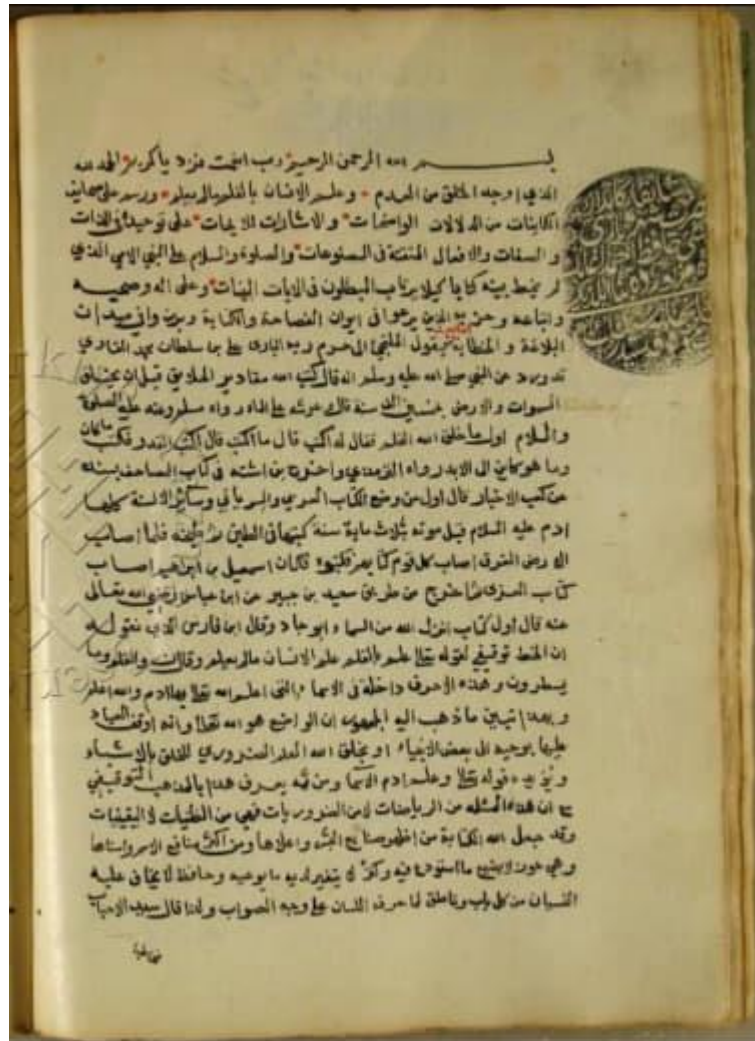 بسم الله الرحمن الرحيم رب انعمت فزد يا كريم الحمد لله
الذي اوجد الخلق من العدم وعلم الانسان بالقلم ما لم يعلم ورسم على صحايف
الكاينات من الدلالات الواضحات والاشارات على توحيده في الذات
والصفات والافعال المتقنة في المصنوعات والصلوة والسلام على النبي الامي الذي
لم يخط بيمينه كتابا كيلا يرتاب المبطلون في الايات البينات وعلى اله وصحبه
واتباعه وحزبه الذين في ايوان الفصاحة والكتابة وميدان
البلاغة والخطابة فيقول الملتجي الى حرم ربه الباري علي بن سلطان محمد القاري
قد ورد عن النبي صلى الله عليه وسلم انه قال كتب الله مقادير الخلايق قبل ان يخلق
السموات والارض بخمسين الف سنة قال عرشه على الماء رواه مسلم وعنه عليه الصلوة
والسلام اول ما خلق الله القلم فقال له اكتب قال ما اكتب قال اكتب القدر فكتب ما كان
وما هو كاين الى الابد رواه الترمذي واخرج ابن اشته في كتاب المصاحف بسنده
عن كعب الاحبار قال اول من وضع الكتاب العربي والسرياني وساير الالسنة كلها
ادم عليه السلام قبل موته بثلاث ماية سنة كتبها في الطين ثم طبخه فلما اصاب
الارض الغرق اصاب كل قوم كتابهم فكتبوه فكان اسمعيل بن ابراهيم اصاب
كتاب العربي ثم اخرج من طريق سعيد بن جبير عن ابن عباس رضي الله تعالى
عنه قال اول كتاب انزل الله من السماء ابو جاد وقال ابن فارس الذي نقوله
ان الخط توقيفي لقوله تعالى علم بالقلم علم الانسان ما لم يعلم وقال ن والقلم وما
يسطرون وهذه الاحرف داخلة في الاسماء التي اعلم الله تعالى بها ادم والله اعلم
وبهذا تبين ما ذهب اليه الجمهور ان الواضع هو الله تعالى وانه اوقف العباد
عليها بوحيه الى بعض الانبياء او بخلق الله العلم الضروري للخلق بالاشياء
ويؤيده قوله تعالى وعلم ادم الاسما ومن ثمه يعرف هذا بالمذهب التوقيفي
ثم ان هذه المسئلة من الرياضات لا من الضروريات فهي من الظنيات لا اليقينات
وقد جعل الله الكتابة من اظهر صنايع البشر واعلاها ومن اكبر منافع الامم واسناها
وهي حرز لا يضيع ما استودع فيه وكنز لا يتغير لديه ما يوعيه وحافظ لا يخاف عليه
النسيان من كل باب وناطق لما حرف اللسان على وجه الصواب ولذا قال الاحباب